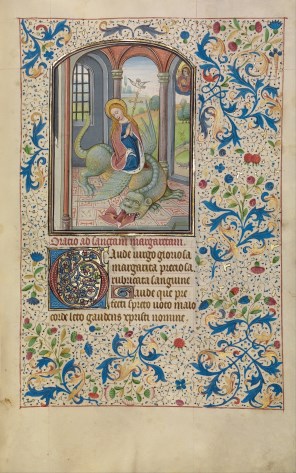 Oratio ad sanctam margaretam.
Gaude uirgo gloriosa
margarita preciosa
rubricata sanguine
Gaude que pre
fecti spreto uoto maio
corde leto gaudens xpristi nomine.